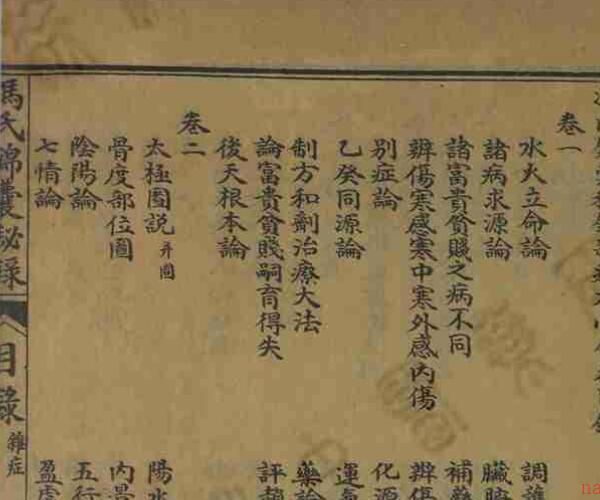 卷一
水火立命論 調
諸病求源論 臟
諸富貴貧賤之病不同 補
辨傷寒感寒中寒外感內傷 辨傷
別症論 化源
乙癸同源論 運
制方和劑治療大法 藥論
論富貴貧賤嗣育得失 評
後天根本論
卷二
太極圖説并圖 陽水
骨度部位圖 內景
陰陽論 五行
七情論 盈虛
馮氏錦囊秘錄 目錄 雜症